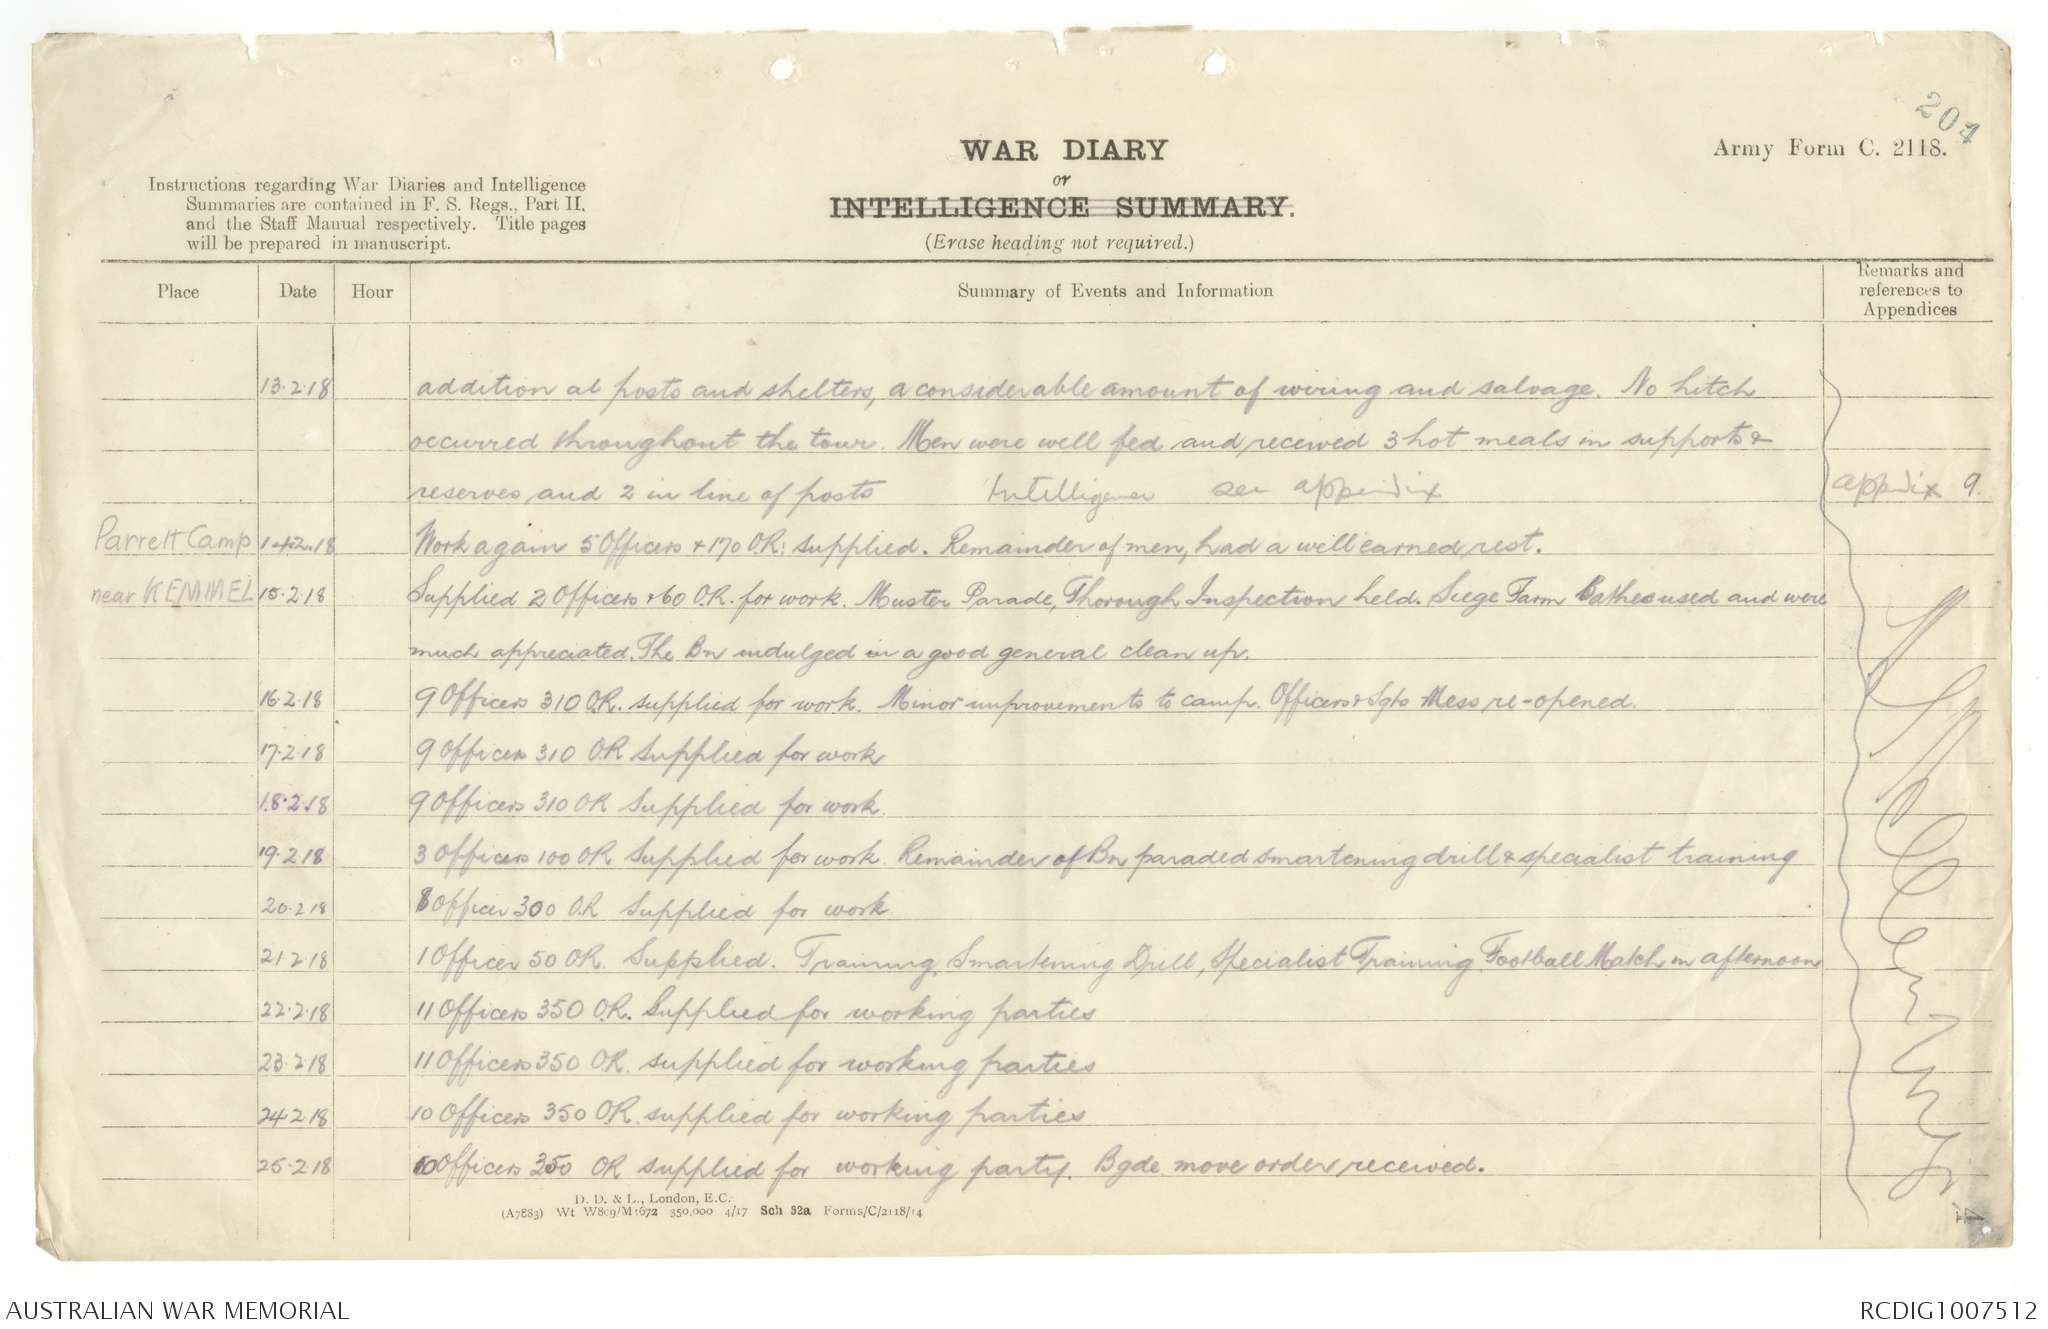 204
WAR DIARY
or
INTELLIGENCE SUMMARY.
(Erase heading not required.)
Army Form C. 2118.
Instructions regarding War Diaries and Intelligence
Summaries are contained in F. S. Regs., Part II.
and the Staff Manual respectively. Title pages
will be prepared in manuscript.
Place Date Hour Summary of Events and Information Remarks and references to Appendices
13.2.18 addition al posts and shelters, a considerable amount of wiring and salvage. No hitch
occurred throughout the tour. Men were well fed and received 3 hot meals in supports &
reserves and 2 in line of posts Intelligence see appendix appdix 9.
Parrett Camp 14.2.18 Work again 5 Officers + 170 O.R. supplied. Remainder of men, had a well earned rest.
near KEMMEL 15.2.18 Supplied 2 Officers + 60 O.R. for work. Muster Parade, Thorough Inspection held. Siege Farm Bathes used and were
much appreciated. The Bn indulged in a good general clean up.
16.2.18 9 Officers 310 O.R. supplied for work. Minor improvements to camp. Officers & Sgts Mess re-opened.
17.2.18 9 Officers 310 O.R. Supplied for work
18.2.18 9 Officers 310 OR Supplied for work.
19.2.18 3 Officers 100 OR Supplied for work. Remainder of Bn paraded smartening drill & specialist training
20.2.18 8 Officer 300 O.R Supplied for work
21 2 18 1 Officer 50 OR. Supplied. Training, Smartening Drill, Specialist Training Football Match in afternoon
22.2.18 11 Officers 350 O.R. Supplied for working parties
23.2.18 11 Officers 350 O.R. supplied for working parties
24.2.18 10 Officers 350 O.R. supplied for working parties
25.2.18 10 Officers 350 OR supplied for working party. Bgde move order received.
D. D. & L., London, E.C.
(A7883) Wt W809/M1672 350,000 4/17 Sch 52a Forms/C/2118/14
AUSTRALIAN WAR MEMORIAL
RCDIG1007512